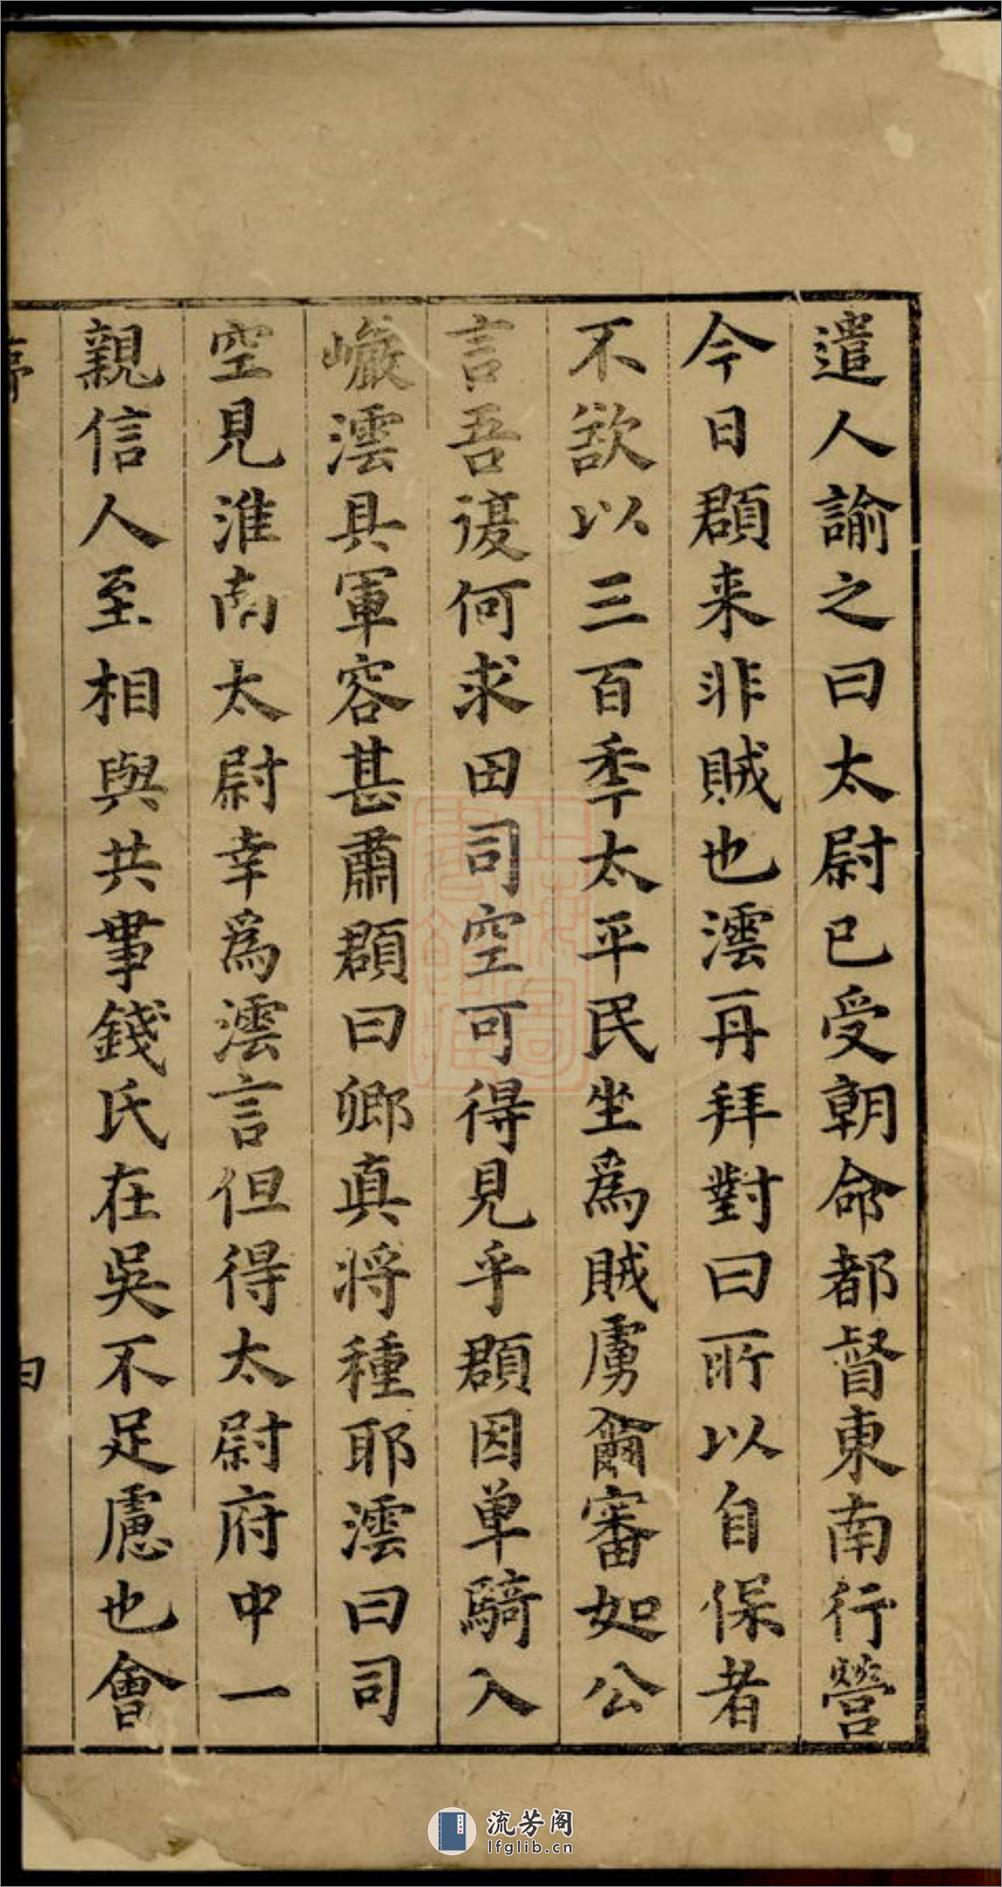 遣人諭之曰太尉已受朝命都督東南行營
今日頵来非賊也澐再拜對曰所以自保者
不欲以三百秊太平民坐為賊虜爾審如公
言吾復何求田司空可得見乎頵因单騎入
巗澐具軍容甚肅頵曰卿真将種耶澐曰司
空見淮南太尉幸為澐言但得太尉府中一
親信人至相與共事錢氏在吳不足慮也會
曰
流芳阁
lfglib.cn